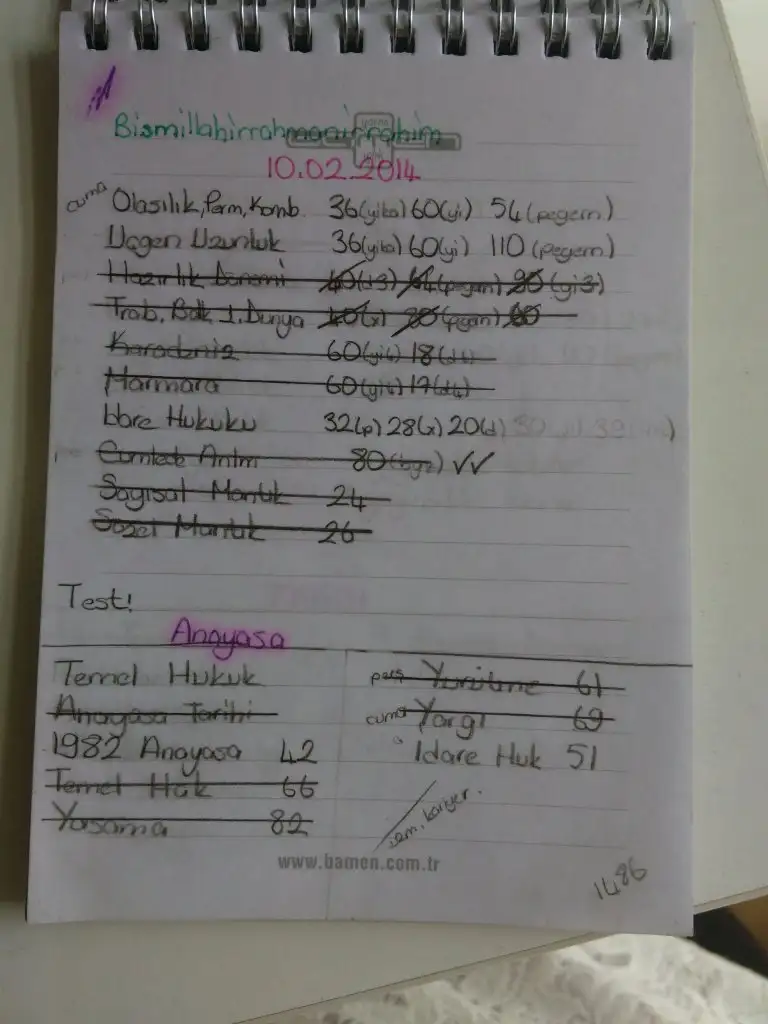 Bismillahirrahmaanirrahim
10.02.2014
cuma Olasılık, Perm, Komb. 36(yiba) 60(yi) 54(pegem)
Üçgen Uzunluk 36(yiba) 60(yi) 110(pegem)
Hazırlık Dönemi 40(d3) 64(pegem) 90(yi3)
Trab, Balk 1. Dünya 40(x) 80(pegem) 60
Karadeniz 60(yi4) 18(d4)
Marmara 60(yi4) 17(d4)
İdare Hukuku 32(p) 28(x) 20(d)
Cümlede Anlm 80 ✓✓
Sayısal Mantık 24
Sözel Mantık 26
Test!
Anayasa
Temel Hukuk
Anayasa Tarihi
1982 Anayasa 42
Temel Hak 66
Yasama 82
perş Yürütme 61
cuma Yargı 69
İdare Huk 51
www.bamen.com.tr
1486